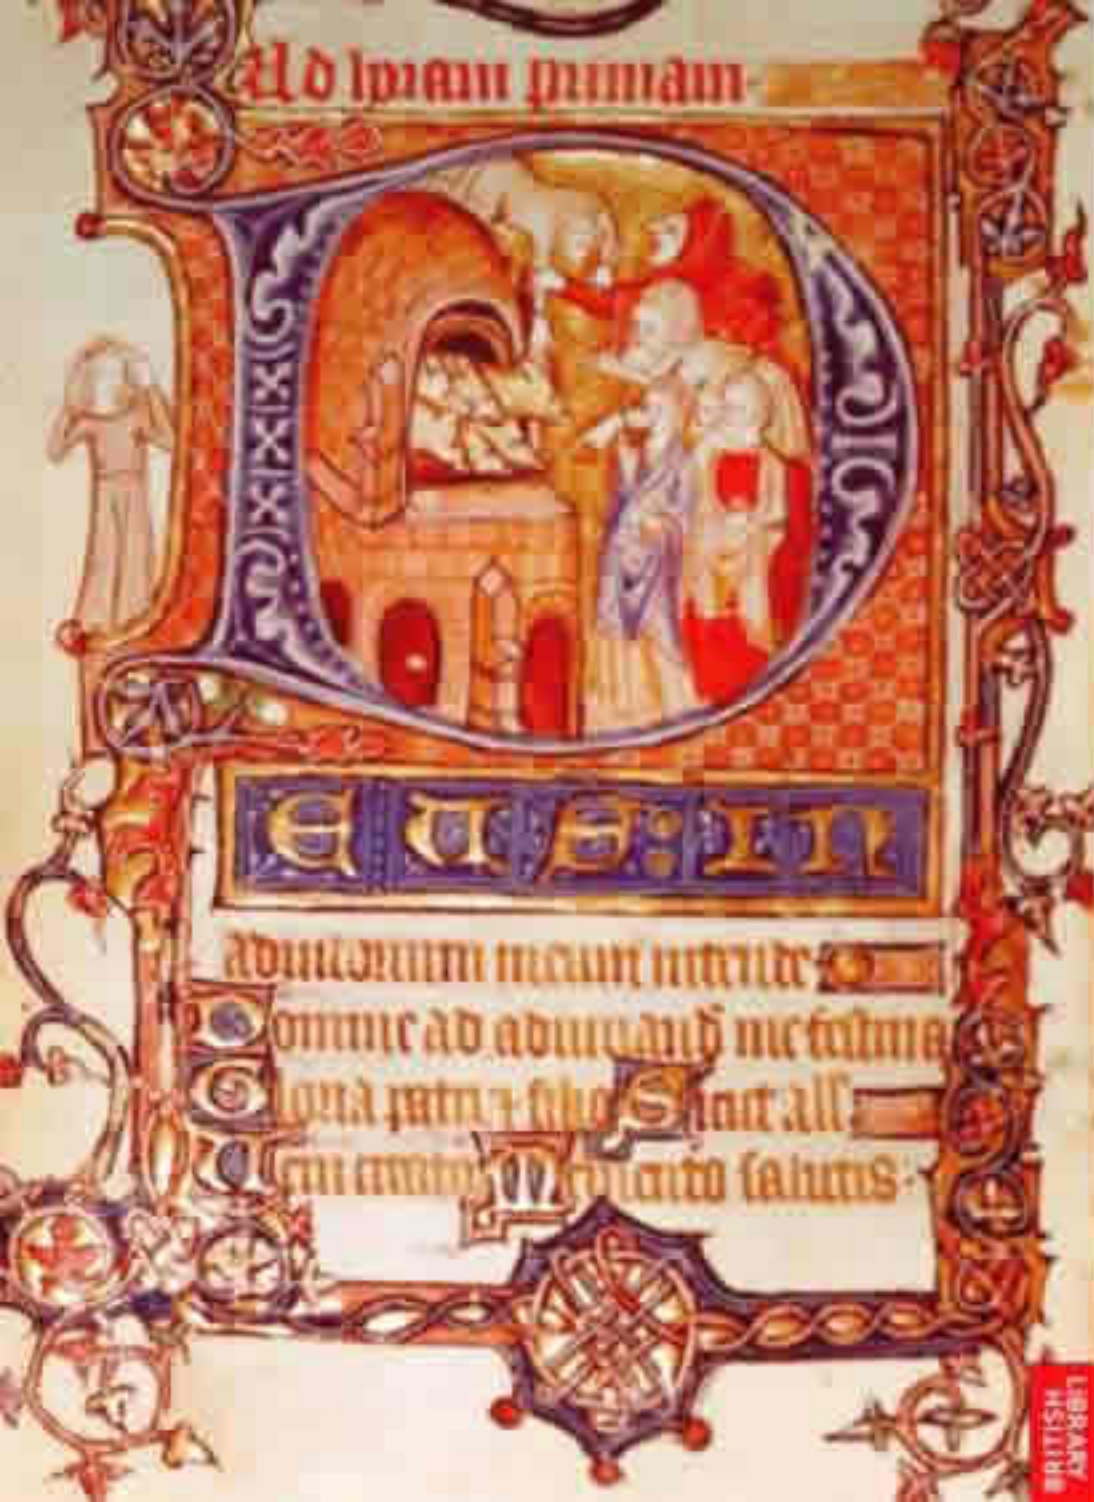 Ad ipsam primam
D
EUS: IN
adiutorium meum intende
Domine ad adiuuand me festina
Gloria patri filio Sicut
Ueni Memento salutis
BRITISH
LIBRARY